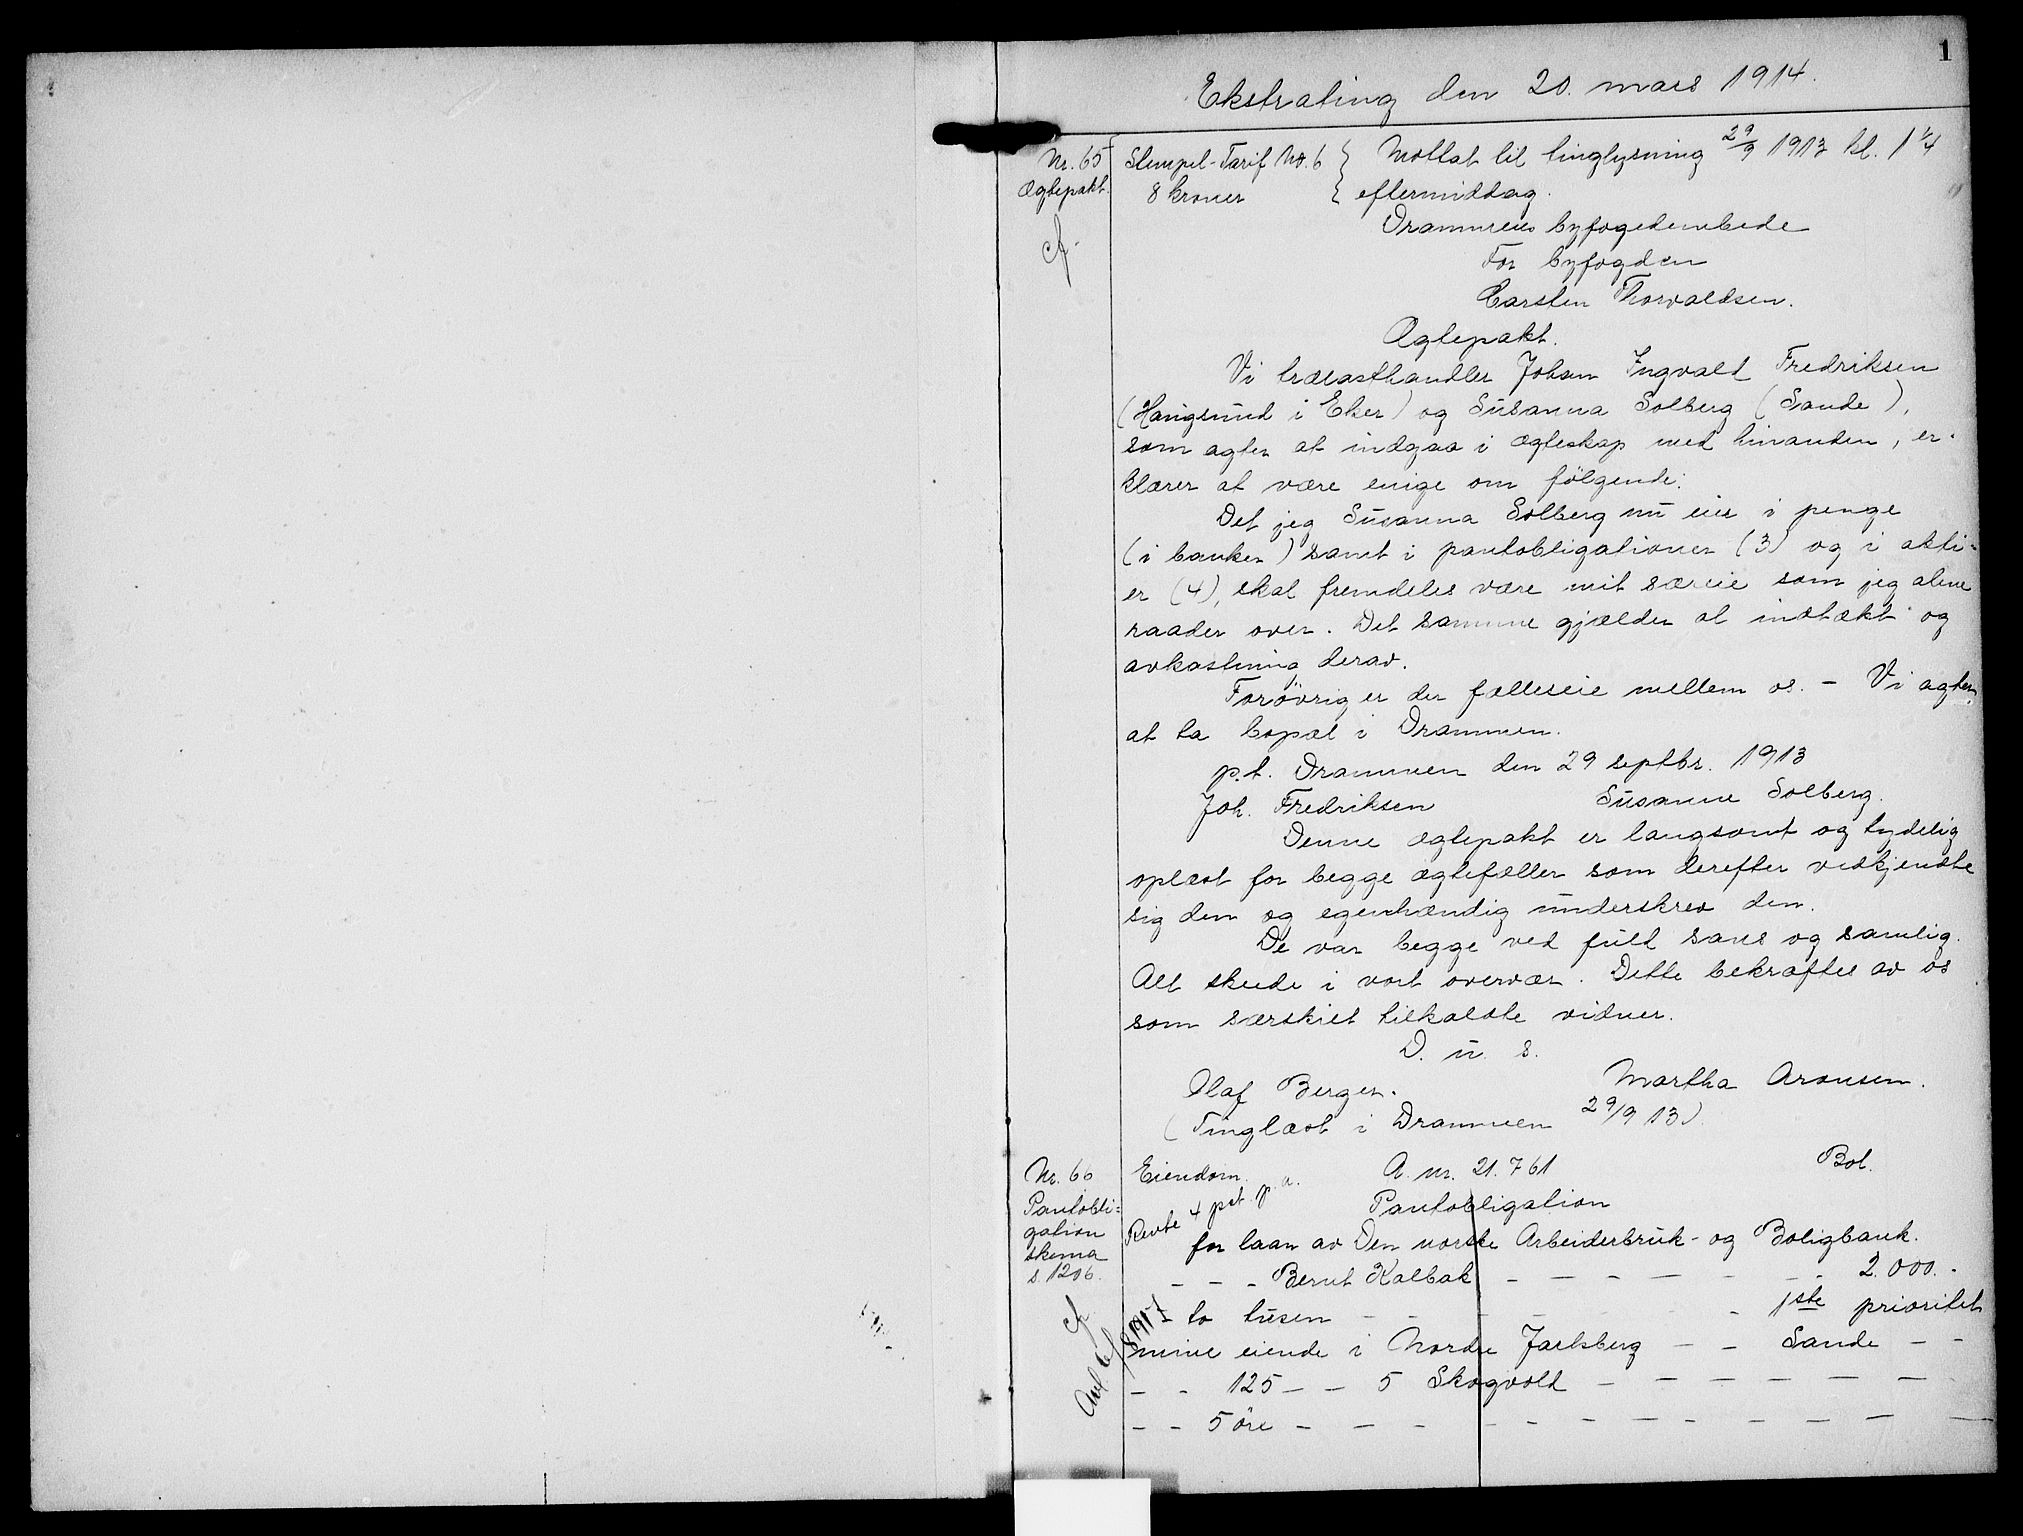 1
Ekstrating den 20. mars 1914.
Nr. 65
Ægtepakt.
cf.
Stempel-Tarif No. 6
8 kroner
Mottat til tinglysning 29/9 1913 kl. 1 1/4
eftermiddag.
Drammens byfogedembede
For byfogden
Carsten Thorvaldsen.
Ægtepakt.
Vi trælasthandler Johan Ingvald Fredriksen
(Haugsund i Eker) og Susanna Solberg (Sande),
som agter at indgaa i ægteskap med hinanden, er-
klærer at være enige om følgende:
Det jeg Susanna Solberg nu eier i penge
(i banken) samt i pantobligationer (3) og i akti-
er (4), skal fremdeles være mit særeie som jeg alene
raader over. Det samme gjælder al indtækt og
avkastning derav.
Forøvrig er der fælleseie mellem os. - Vi agter
at ta bopæl i Drammen.
p.t. Drammen den 29 septbr. 1913
Joh. Fredriksen Susanne Solberg.
Denne ægtepakt er langsomt og tydelig
oplæst for begge ægtefæller som derefter vedkjendte
sig den og egenhændig underskrev den.
De var begge ved fuld sans og samlig.
Alt skede i vort overvær. Dette bekræftes av os
som særskilt tilkaldte vidner.
D. u. s.
Olaf Berger. Martha Aronsen.
(Tinglæst i Drammen 29/9 13)
Nr. 66
Pantobli-
gation
skema
s. 1206.
cf
Avl. 6/8 1917
Eiendom. A. nr. 21.761 Bol.
Rente 4 pct. p. a. Pantobligation
for laan av Den norske Arbeiderbruk- og Boligbank.
- - - Bernt Kalbak - - - - - - - 2.000.-
- to tusen - - - - - - - 1ste prioritet
mine eiende i Nordre Jarlsberg - - Sande - -
- - 125 - - 5 Skogvold - - - - - - -
- - 5 øre - - - - - - - - - - -